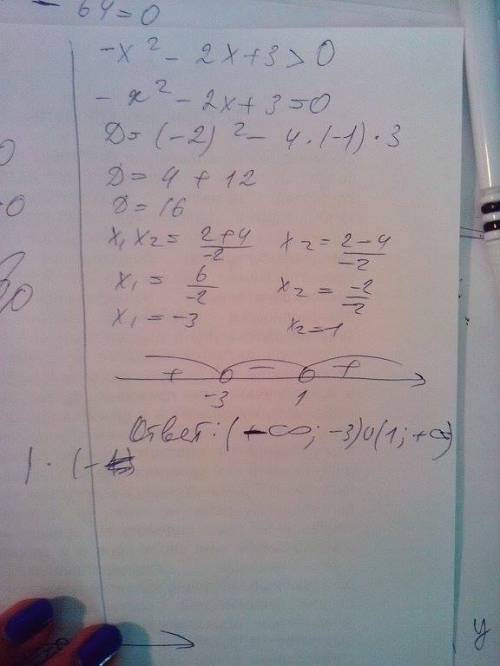 - 64=0
-x² - 2x+3>0
-x² - 2x+3=0
D=(-2)²- 4·(-1)·3
D= 4 + 12
D=16
x₁x₂= 2+4/-2 x₂= 2-4/-2
x₁= 6/-2 x₂= -2/-2
x₁=-3 x₂=1
+ - +
-3 1
Ответ: (-∞; -3)∪(1; +∞)
y